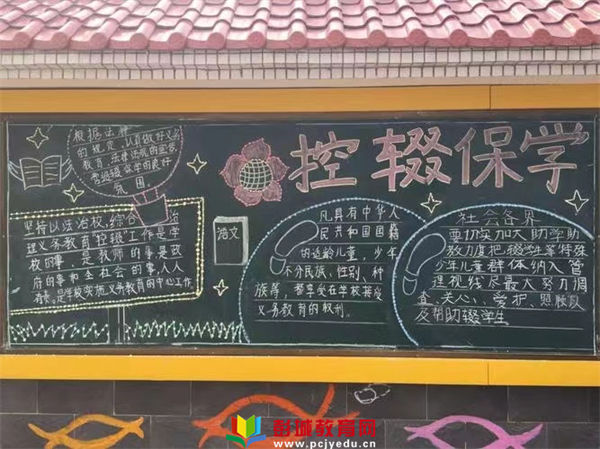 控辍保学
根据法律
的规定，认真做好义务
教育，法律法规的宣传
营造辍学的良好
氛围
坚持以法治校，综合治
理义务教育"控辍"工作是学
校的事 是教师的事是政
府的事和全社会的事，人人
有责。是学校实施义务教育的中心工作
语文
凡具有中华人
民共和国国籍
的适龄儿童，少年
不分民族、性别、种
族等，都享受在学校接受
义务教育的权利。
社会各界
要切实加大助学助
教力度把辍学生等特殊
少年儿童群体纳入管
理视线尽最大努力调
查、关心、爱护、照顾以
及帮助辍学生
彭城教育网
www.pcjyedu.cn